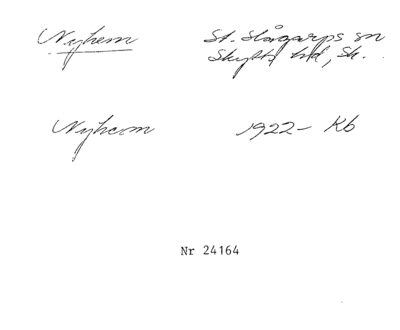 Nyhem St. Slågarps sn
Skytts hd, Sk.
Nyhem 1922- Kb
Nr 24164